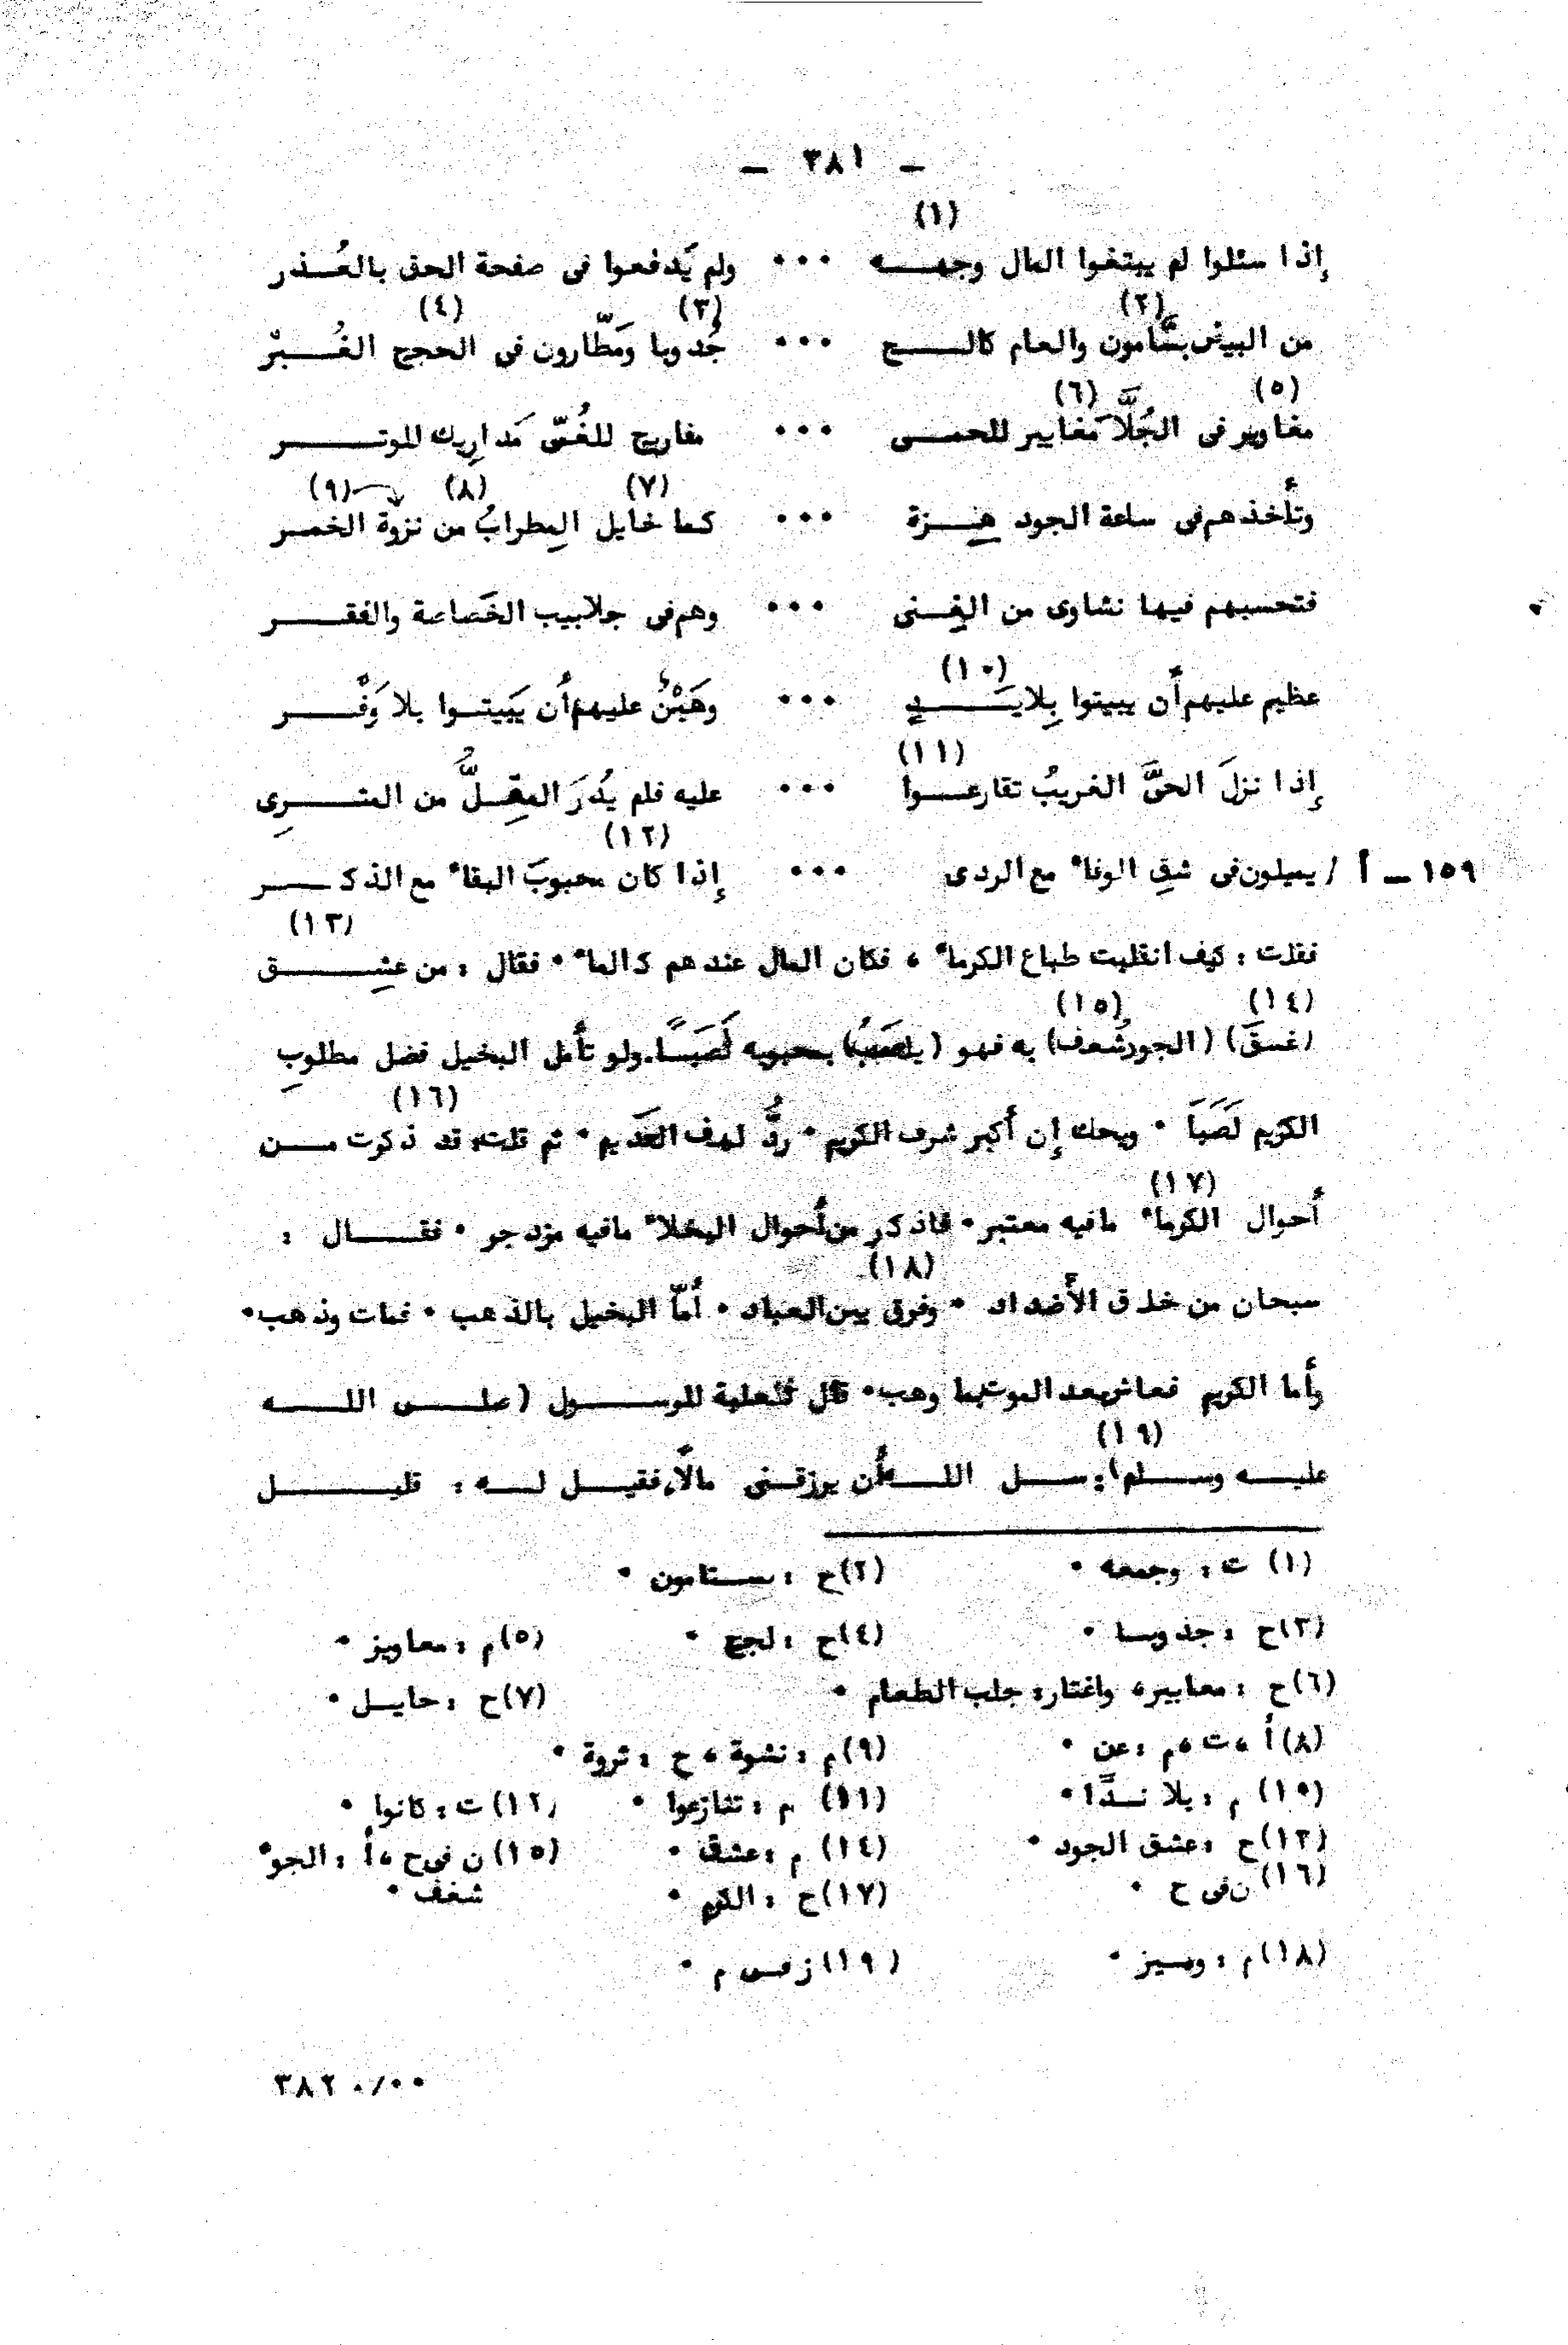 ــ ٣٨١ ــ
(١)
إذا سئلوا لم يبتغوا المال وجهــه ... ولم يَدفعوا فى صفحة الحق بالعُــذر
(٢) (٣) (٤)
من البيض بسَّامون والعام كالــح ... جُدوبا ومَطَّارون فى الحجج الغُــبْر
(٥) (٦)
مغاوير فى الجُلَّا مَغايير للحمــى ... مفاريج للغُمّى مَداريك للوتــر
(٧) (٨) (٩)
وتأخذهم فى ساعة الجود هِــزة ... كما خايل المِطرابُ من نزوة الخمــر
فتحسبهم فيها نشاوى من الغِــنى ... وهم فى جلابيب الخَصاصة والفقــر
(١٠)
عظيم عليهم أن يبيتوا بِلا يَــدٍ ... وهَيْنٌ عليهم أن يَبيتــوا بلا وَفْــر
(١١)
إذا نزلَ الحقَّ الغريبُ تقارعــوا ... عليه فلم يُدرَ المقِــلُّ من المثــرِى
(١٢)
١٥٩ ــ أ / يميلون فى شقِ الوفاء مع الردى ... إذا كان محبوبَ البقاء مع الذكــر
(١٣)
فقلت : كيف انقلبت طباع الكرماء ، فكان المال عندهم كالماء . فقال : من عشِــق
(١٤) (١٥)
(غسقَ) (الجود شُعف) به فهو (يلصَبُ) بمحبوبه لَصَبــًا . ولو تأمل البخيل فضل مطلوبِ
(١٦)
الكريم لَصَبَا . ويحك إن أكبر شرف الكريم . ردُّ لهف العَديم . ثم قلت: قد ذكرت مــن
(١٧)
أحوال الكرماء مافيه معتبر . فاذكر من أحوال البخلاء مافيه مزدجر . فقــال :
(١٨)
سبحان من خلق الأضداد . وفرق بين العباد . أمّا البخيل بالذهب . فمات وذهب .
وأما الكريم فعاش بعد الموت بما وهب . قال ثعلبة للرســول (صلــى اللــه
(١٩)
عليــه وســلم) : ســل اللــه أن يرزقــنى مالًا، فقيــل لــه : قليــل
(١) ت : وجمعه . (٢) ح : ســتامون .
(٣) ح : جذوبــا . (٤) ح : لجج . (٥) م : معاويز .
(٦) ح : معابير ، واغتار: جلب الطعام . (٧) ح : حايــل .
(٨) أ ، ت ، م : عن . (٩) م : نشوة ، ح : ثروة .
(١٠) م : بلا نــدًّا . (١١) م : تنازعوا . (١٢) ت : كانوا .
(١٣) ح : عشق الجود . (١٤) م : عشق . (١٥) ن فى ح ، أ : الجوء
(١٦) ن فى ح . (١٧) ح : الكرم . شغف .
(١٨) م : وميــز . (١٩) ز فــى م .
٣٨٢ ./..